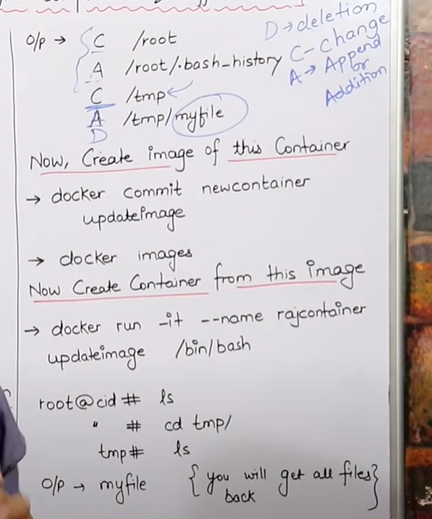 O/p → C /root
A /root/.bash_history
C /tmp ←
A /tmp/myfile
D
D → deletion
C - Change
A → Append
or
Addition
Now, Create image of this Container
→ docker commit newcontainer
updateimage
→ docker images
Now Create Container from this image
→ docker run -it --name rajcontainer
updateimage /bin/bash
root@cid # ls
" # cd tmp/
tmp# ls
O/p → myfile {you will get all files}
back